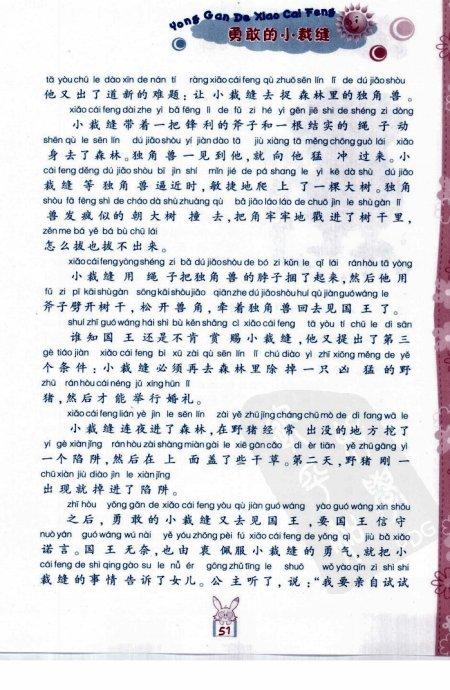 Yong Gan De Xiao Cai Feng
勇敢的小裁缝
tā yòu chū le dào xīn de nán tí ràng xiǎo cái feng qù zhuō sēn lín lǐ de dú jiǎo shòu
他又出了道新的难题：让小裁缝去捉森林里的独角兽。
xiǎo cái feng dài zhe yì bǎ fēng lì de fǔ zi hé yì gēn jiē shi de shéng zi dòng
小裁缝带着一把锋利的斧子和一根结实的绳子动
shēn qù le sēn lín dú jiǎo shòu yí jiàn dào tā jiù xiàng tā měng chōng guò lái xiǎo
身去了森林。独角兽一见到他，就向他猛冲过来。小
cái feng děng dú jiǎo shòu bī jìn shí mǐn jié de pá shang le yì kē dà shù dú jiǎo
裁缝等独角兽逼近时，敏捷地爬上了一棵大树。独角
shòu fā fēng shì de cháo dà shù zhuàng qù bǎ jiǎo láo láo de chuō jìn le shù gàn lǐ
兽发疯似的朝大树撞去，把角牢牢地戳进了树干里，
zěn me bá yě bá bù chū lái
怎么拔也拔不出来。
xiǎo cái feng yòng shéng zi bǎ dú jiǎo shòu de bó zi kǔn le qǐ lái rán hòu tā yòng
小裁缝用绳子把独角兽的脖子捆了起来，然后他用
fǔ zi pī kāi shù gàn sōng kāi shòu jiǎo qiān zhe dú jiǎo shòu huí qù jiàn guó wáng le
斧子劈开树干，松开兽角，牵着独角兽回去见国王了。
shuí zhī guó wáng hái shi bù kěn shǎng cì xiǎo cái feng tā yòu tí chū le dì sān
谁知国王还是不肯赏赐小裁缝，他又提出了第三
gè tiáo jiàn xiǎo cái feng bì xū zài qù sēn lín lǐ chú diào yì zhī xiōng měng de yě
个条件：小裁缝必须再去森林里除掉一只凶猛的野
zhū rán hòu cái néng jǔ xíng hūn lǐ
猪，然后才能举行婚礼。
xiǎo cái feng lián yè jìn le sēn lín zài yě zhū jīng cháng chū mò de dì fang wā le
小裁缝连夜进了森林，在野猪经常出没的地方挖了
yí gè xiàn jǐng rán hòu zài shàng miàn gài le xiē gān cǎo dì èr tiān yě zhū gāng yì
一个陷阱，然后在上面盖了些干草。第二天，野猪刚一
chū xiàn jiù diào jìn le xiàn jǐng
出现就掉进了陷阱。
zhī hòu yǒng gǎn de xiǎo cái feng yòu qù jiàn guó wáng yào guó wáng xìn shǒu
之后，勇敢的小裁缝又去见国王，要国王信守
nuò yán guó wáng wú nài yě yóu zhōng pèi fú xiǎo cái feng de yǒng qì jiù bǎ xiǎo
诺言。国王无奈，也由衷佩服小裁缝的勇气，就把小
cái feng de shì qing gào su le nǚ ér gōng zhǔ tīng le shuō wǒ yào qīn zì shì shi
裁缝的事情告诉了女儿。公主听了，说：“我要亲自试试
51